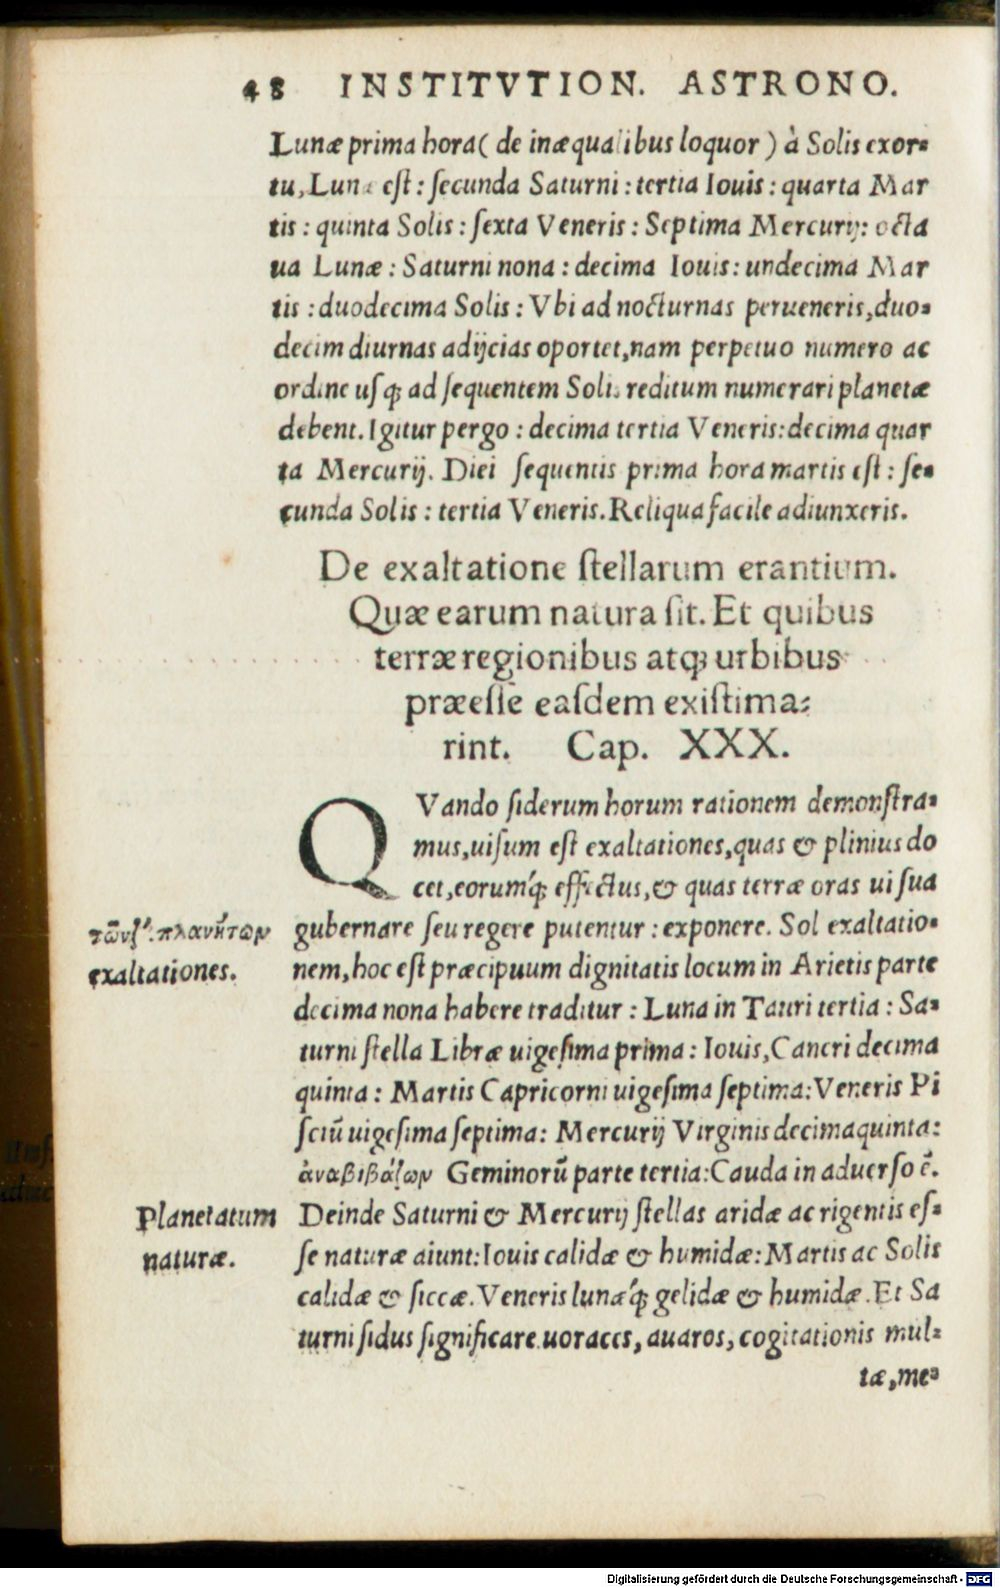 48 INSTITVTION. ASTRONO.
Lunæ prima hora( de inæqualibus loquor ) à Solis exor-
tu, Luna est : secunda Saturni : tertia Iouis : quarta Mar
tis : quinta Solis : sexta Veneris : Septima Mercurij: octa
ua Lunæ : Saturni nona : decima Iouis : undecima Mar
tis : duodecima Solis : Vbi ad nocturnas perueneris, duo-
decim diurnas adijcias oportet, nam perpetuo numero ac
ordine usq; ad sequentem Solis reditum numerari planetæ
debent. Igitur pergo : decima tertia Veneris: decima quar
ta Mercurij. Diei sequentis prima hora martis est : se-
cunda Solis : tertia Veneris. Reliqua facile adiunxeris.
De exaltatione stellarum erantium.
Quæ earum natura sit. Et quibus
terræ regionibus atq; urbibus
præesse easdem existima-
rint. Cap. XXX.
QVando siderum horum rationem demonstra-
mus, uisum est exaltationes, quas & plinius do
cet, eorumq́; effectus, & quas terræ oras ui sua
τῶν ζ΄. πλανήτων
exaltationes.
gubernare seu regere putentur : exponere. Sol exaltatio-
nem, hoc est præcipuum dignitatis locum in Arietis parte
decima nona habere traditur : Luna in Tauri tertia : Sa-
turni stella Libræ uigesima prima : Iouis, Cancri decima
quinta : Martis Capricorni uigesima septima: Veneris Pi
sciũ uigesima septima: Mercurij Virginis decimaquinta:
ἀναβιβάζων Geminorũ parte tertia: Cauda in aduerso ē.
Planetatum
naturæ.
Deinde Saturni & Mercurij stellas aridæ ac rigentis es-
se naturæ aiunt: Iouis calidæ & humidæ: Martis ac Solis
calidæ & siccæ. Veneris lunæq́; gelidæ & humidæ. Et Sa
turni sidus significare uoraces, auaros, cogitationis mul-
tæ, me-
Digitalisierung gefördert durch die Deutsche Forschungsgemeinschaft - DFG